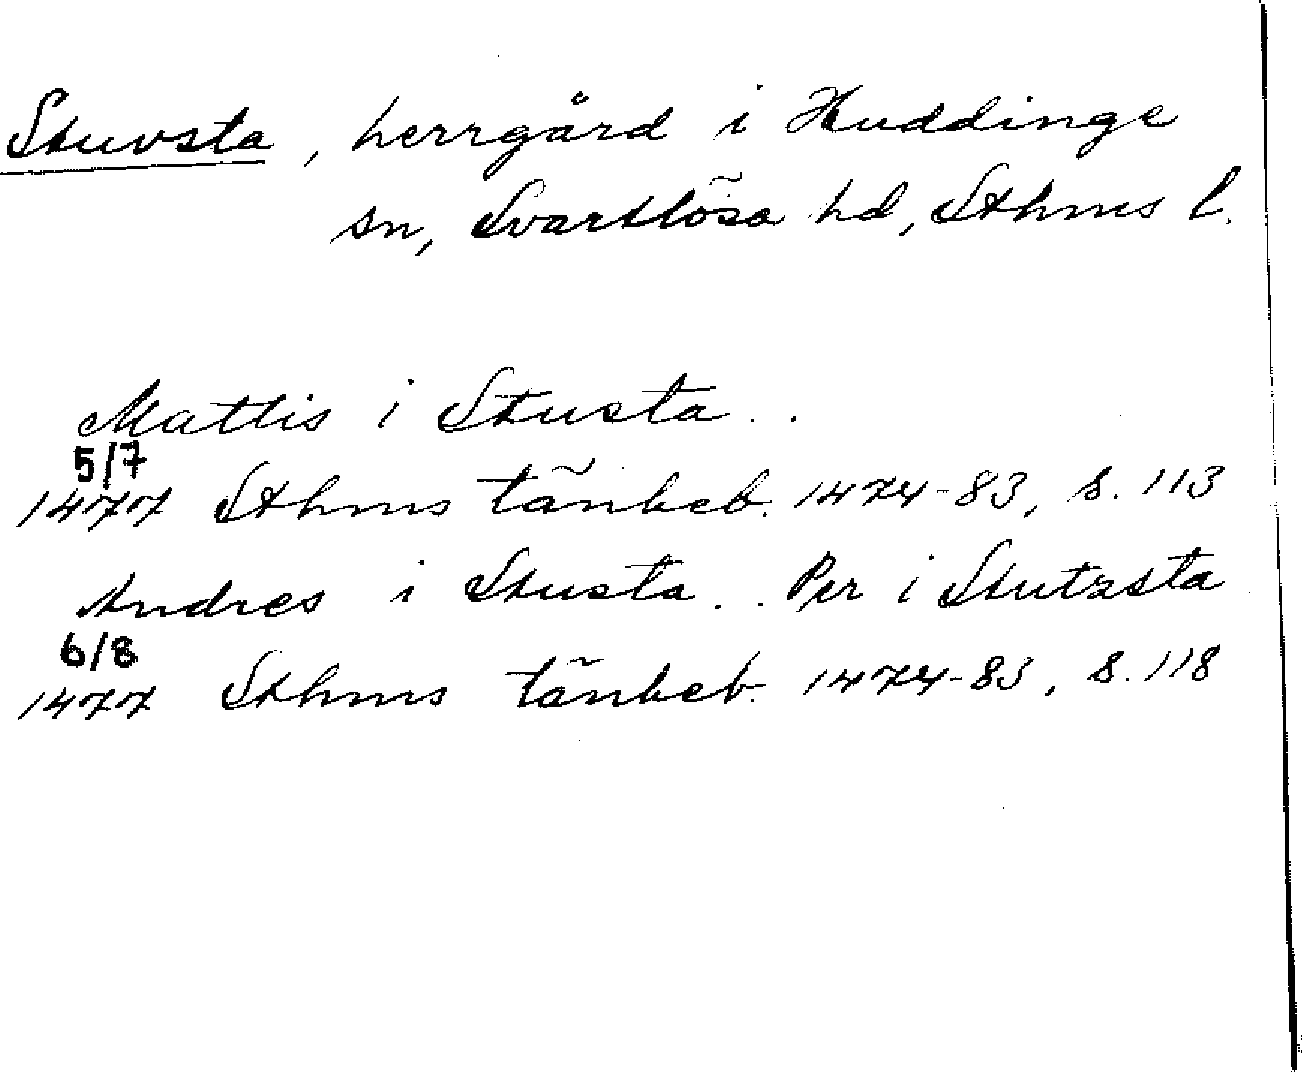 Stuvsta, herrgård i Huddinge
sn, Svartlösa hd, Sthms l.
Mattis i Stusta..
5/7
1477 Sthms tänkeb. 1474-83, s. 113
Andres i Stusta.. Per i Stutzsta
6/8
1477 Sthms tänkeb. 1474-83, s. 118